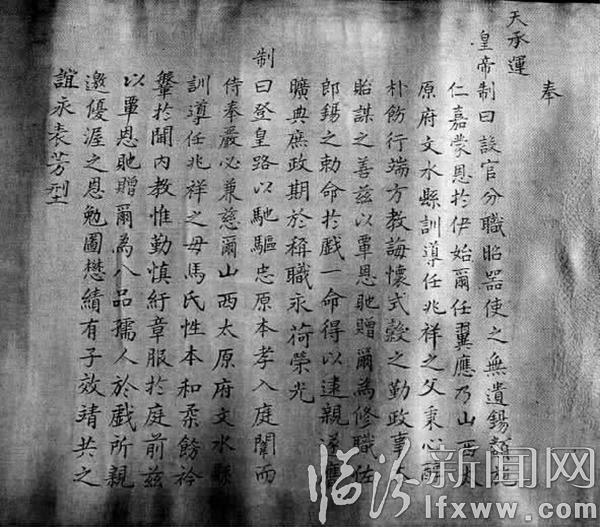 奉
天承運
皇帝制曰設官分職昭器使之無遺錫類施
仁嘉蒙恩於伊始爾任翼應乃山西太
原府文水縣訓導任兆祥之父秉心醇
朴飭行端方教誨懷式穀之勤政事
貽謀之善茲以覃恩貤贈爾為修職佐
郎錫之勅命於戲一命得以逮親
曠典庶政期於稱職永荷榮光
制曰登皇路以馳驅忠原本孝入庭闈而
侍奉嚴必兼慈爾山西太原府文水縣
訓導任兆祥之母馬氏性本和柔飭衿
鞶於閫內教惟勤慎紆章服於庭前茲
以覃恩貤贈爾為八品孺人於戲所親
邀優渥之恩勉圖懋績有子效靖共之
誼永表芳型
临汾新闻网
lfxww.com